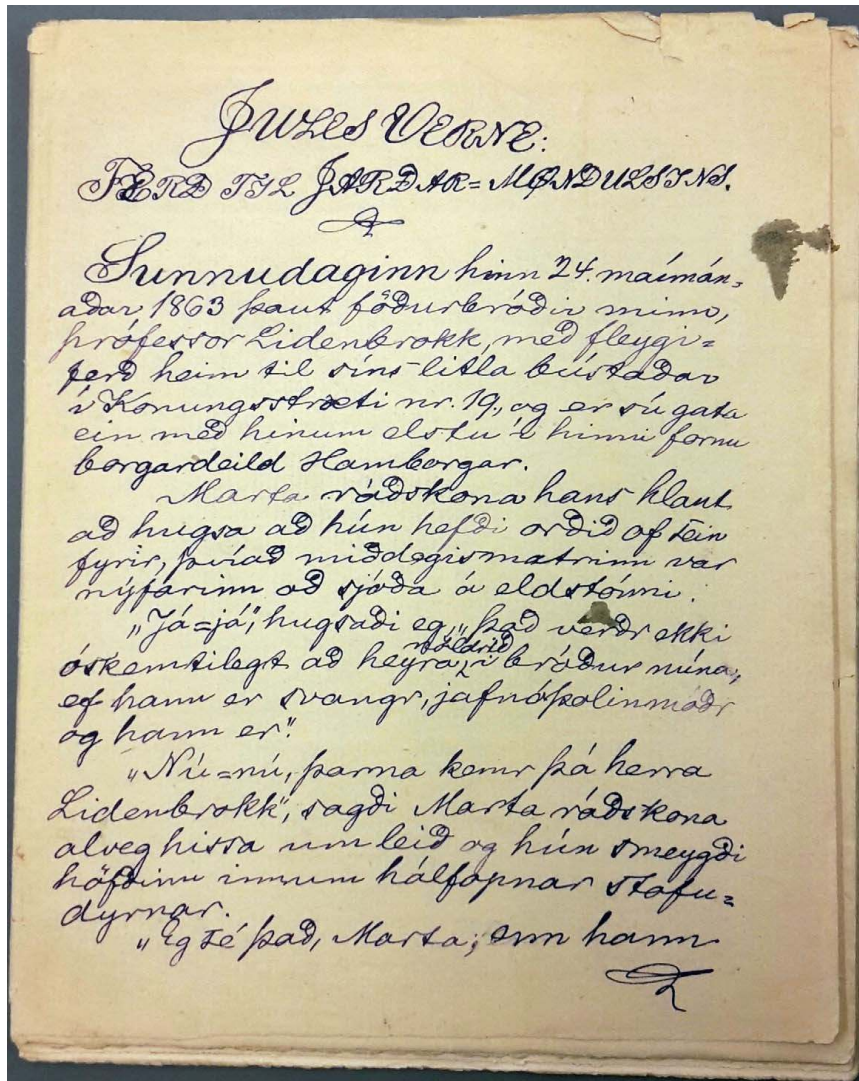 JULES VERNE:
FERÐ TIL JARÐAR=MØNDULSINS.
Sunnudaginn hinn 24. maímán=
aðar, 1863 þaut föðurbróðir minn,
prófessor Lidenbrokk, með fleygi=
ferð heim til síns litla bústaðar
í Konungsstræti nr. 19., og er sú gata
ein með hinum elstu í hinni fornu
borgardeild Hamborgar.
Marta ráðskona hans hlaut
að hugsa að hún hefði orðið of sein
fyrir, þvíað miðdegismatrinn var
nýfarinn að sjóða á eldstónni.
„Já=já“, hugsaði eg, „það verðr ekki
óskemtilegt að heyra nöldrið í bróður núna,
ef hann er svangr, jafnóþolinmóðr
og hann er“.
„Nú=nú, þarna kemr þá herra
Lidenbrokk“, sagði Marta ráðskona
alveg hissa um leið og hún smeygði
höfðinu innum hálfopnar stofu=
dyrnar.
„Eg sé það, Marta; enn hann